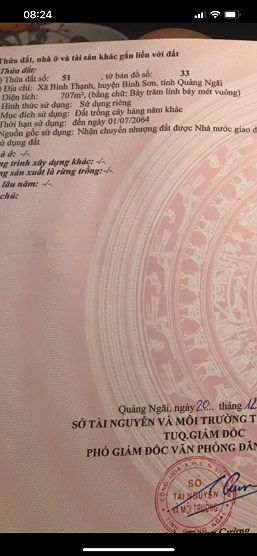 08:24
Thửa đất, nhà ở và tài sản khác gắn liền với đất
Thửa đất:
) Thửa đất số: 51 , tờ bản đồ số: 33
) Địa chỉ: Xã Bình Thạnh, huyện Bình Sơn, tỉnh Quảng Ngãi
Diện tích: 707m², (bằng chữ: Bảy trăm linh bảy mét vuông)
Hình thức sử dụng: Sử dụng riêng
Mục đích sử dụng: Đất trồng cây hàng năm khác
Thời hạn sử dụng: đến ngày 01/07/2064
Nguồn gốc sử dụng: Nhận chuyển nhượng đất được Nhà nước giao đ
ử dụng đất
à ở: -/-.
ng trình xây dựng khác: -/-.
ng sản xuất là rừng trồng: -/-.
lâu năm: -/-.
chú:
Quảng Ngãi, ngày 20 tháng 12
SỞ TÀI NGUYÊN VÀ MÔI TRƯỜNG T
TUQ.GIÁM ĐỐC
PHÓ GIÁM ĐỐC VĂN PHÒNG ĐĂN
SỞ
TÀI NGUYÊN
VÀ MÔI TRƯỜNG
Cường